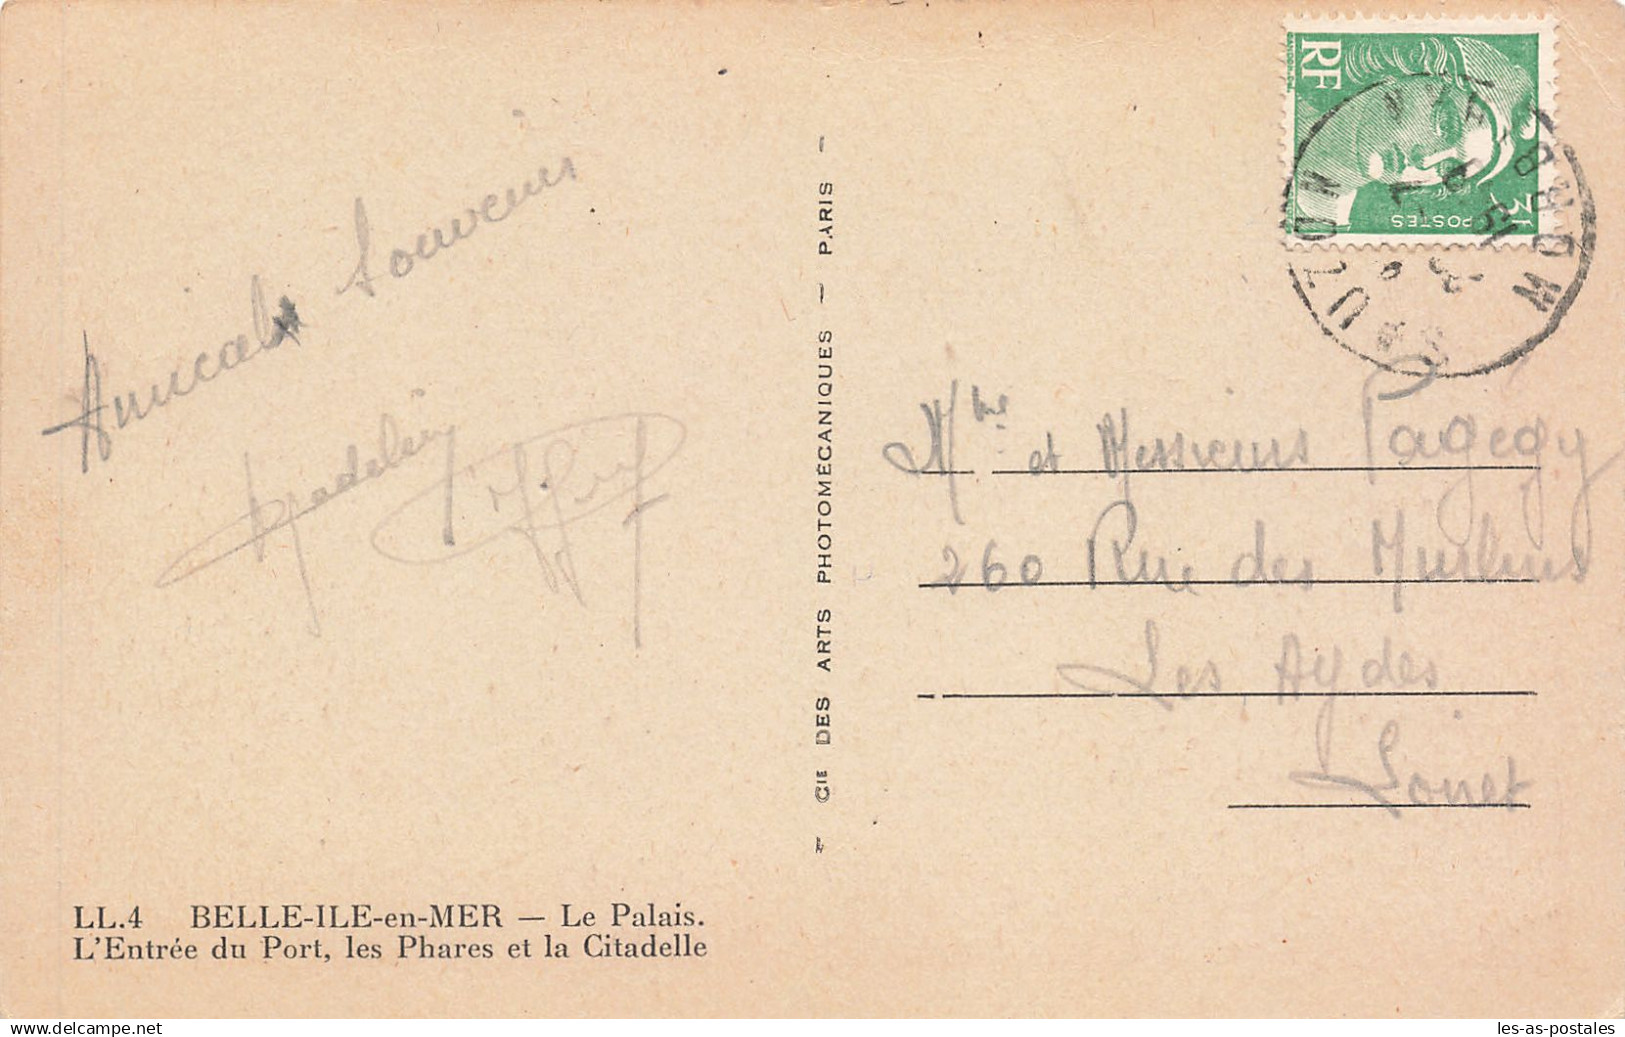 Amicale Souvenir
Madeleine
Mme et Messieurs Pagégy
260 Rue des Murlins
Les Aydes
Loiret
RF
POSTES
AUZON
MORB
CIE DES ARTS PHOTOMÉCANIQUES — PARIS —
LL.4 BELLE-ILE-en-MER — Le Palais.
L'Entrée du Port, les Phares et la Citadelle
www.delcampe.net
les-as-postales